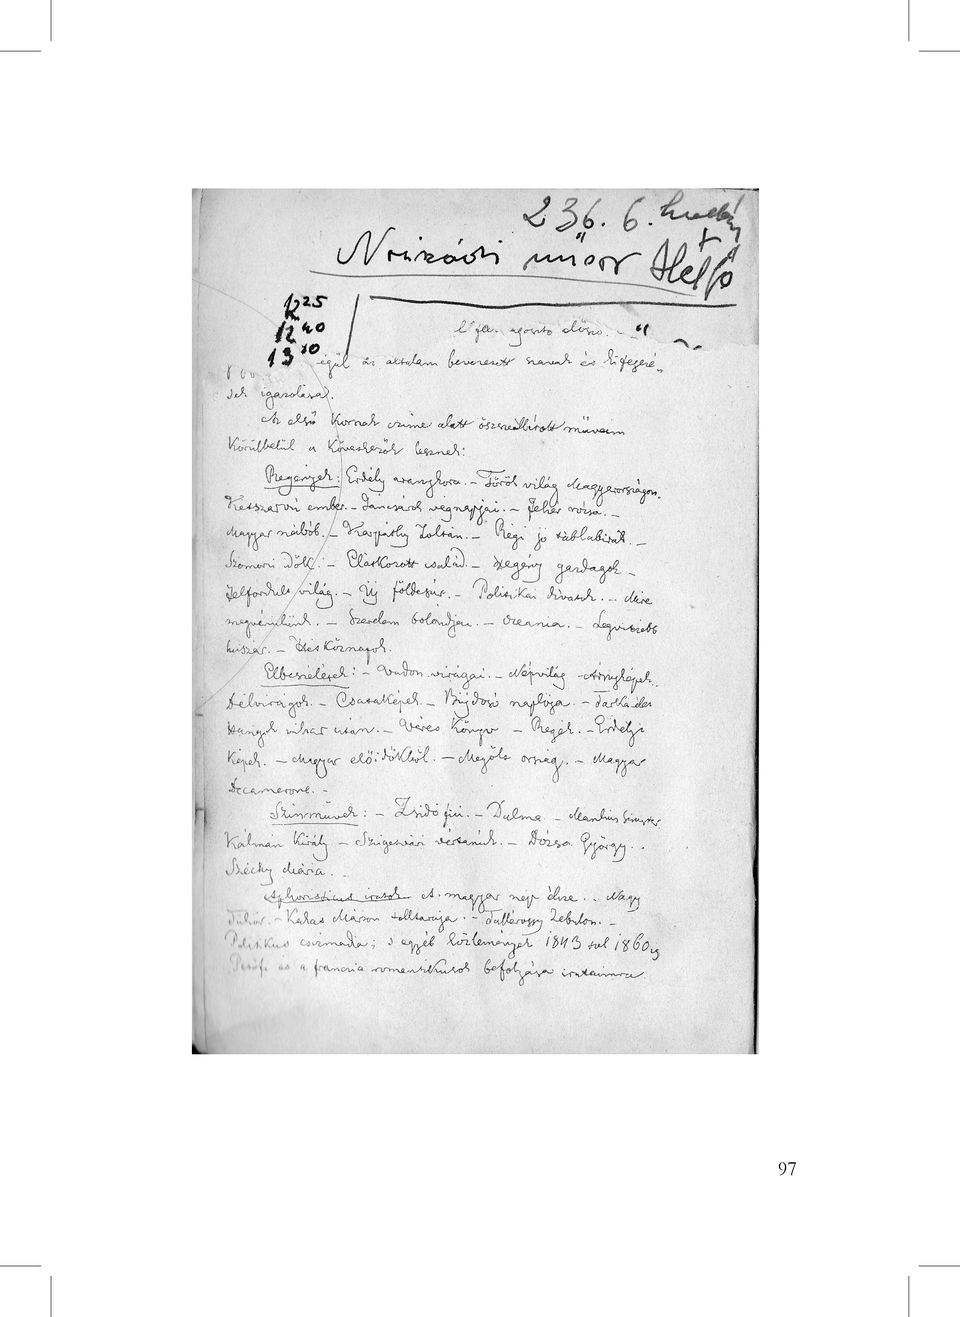 236. 6.
műsor Hétfő
12 25
12 40
13 10
az általam bevezetett szavak és kifejezé-
sek igazolása.
Az első kornak czime alatt összeállított műveim
Körülbelül a következők lesznek:
Regények: Erdély aranykora. – Török világ Magyarországon.
Kétszarvú ember. – Janicsárok végnapjai. – Fehér rózsa. –
Magyar nábób. – Kárpáthy Zoltán. – Régi jó táblabirák. –
Szomorú idők. – Elátkozott család. – Szegény gazdagok –
Felfordult világ. – Új földesúr. – Politikai divatok. – Mire
megvénülünk. – Szerelem bolondjai. – Oceania. – Legvitézebb
huszár. – Hétköznapok.
Elbeszélések: – Vadon virágai. – Népvilág – Árnyképek.
Délvirágok. – Csataképek. – Bújdosó naplója. – Tarka élet
Hangok vihar után. – Véres Könyv – Regék. – Erdélyi
Képek. – Magyar előidőkből. – Megölt ország. – Magyar
Decamerone. –
Szinművek: – Zsidó fiú. – Dalma. – Manlius Sinister
Kálmán Király – Szigetvári vértanúk. – Dózsa György. –
Széchy Mária. –
Aphoristicus iratok A magyar nép élcze. – Nagy
Tükör. – Kakas Márton tolltaraja. – Tallérossy Zebulon. –
Politikus csizmadia; s egyéb közlemények 1843 tol 1860ig
Petőfi és a franczia romantikusok befolyása irataimra
97